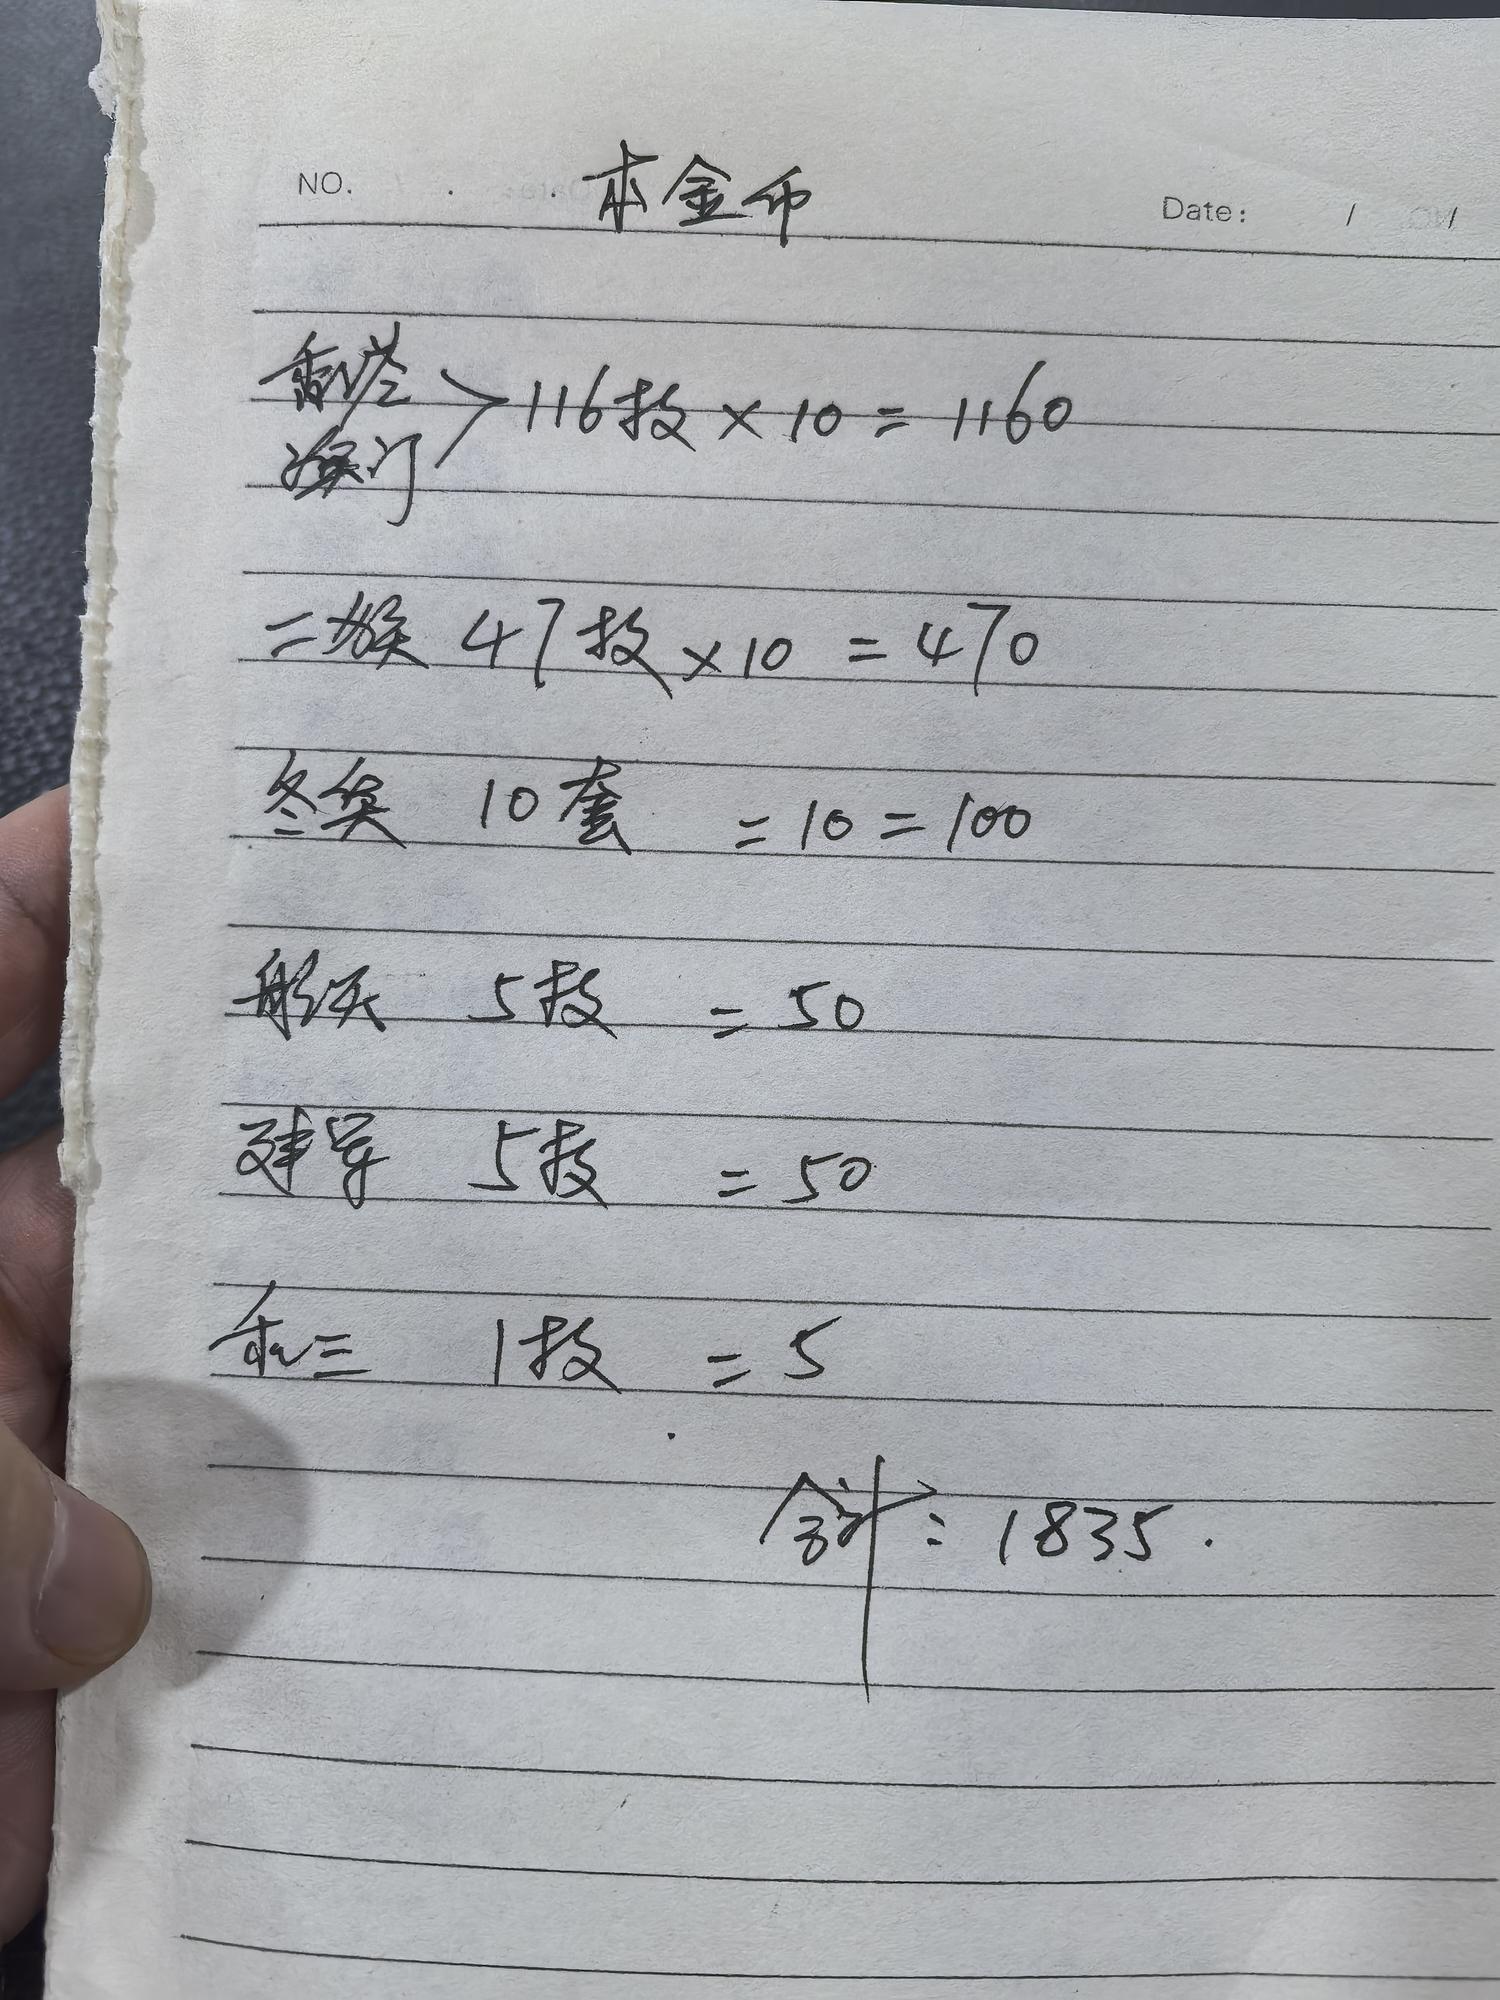 NO.
本金币
Date: / /
香港
澳门 >116枚×10=1160
二猴 47枚×10=470
冬奥 10套 =10=100
航天 5枚 =50
建军 5枚 =50
和三 1枚 =5
合计: 1835.